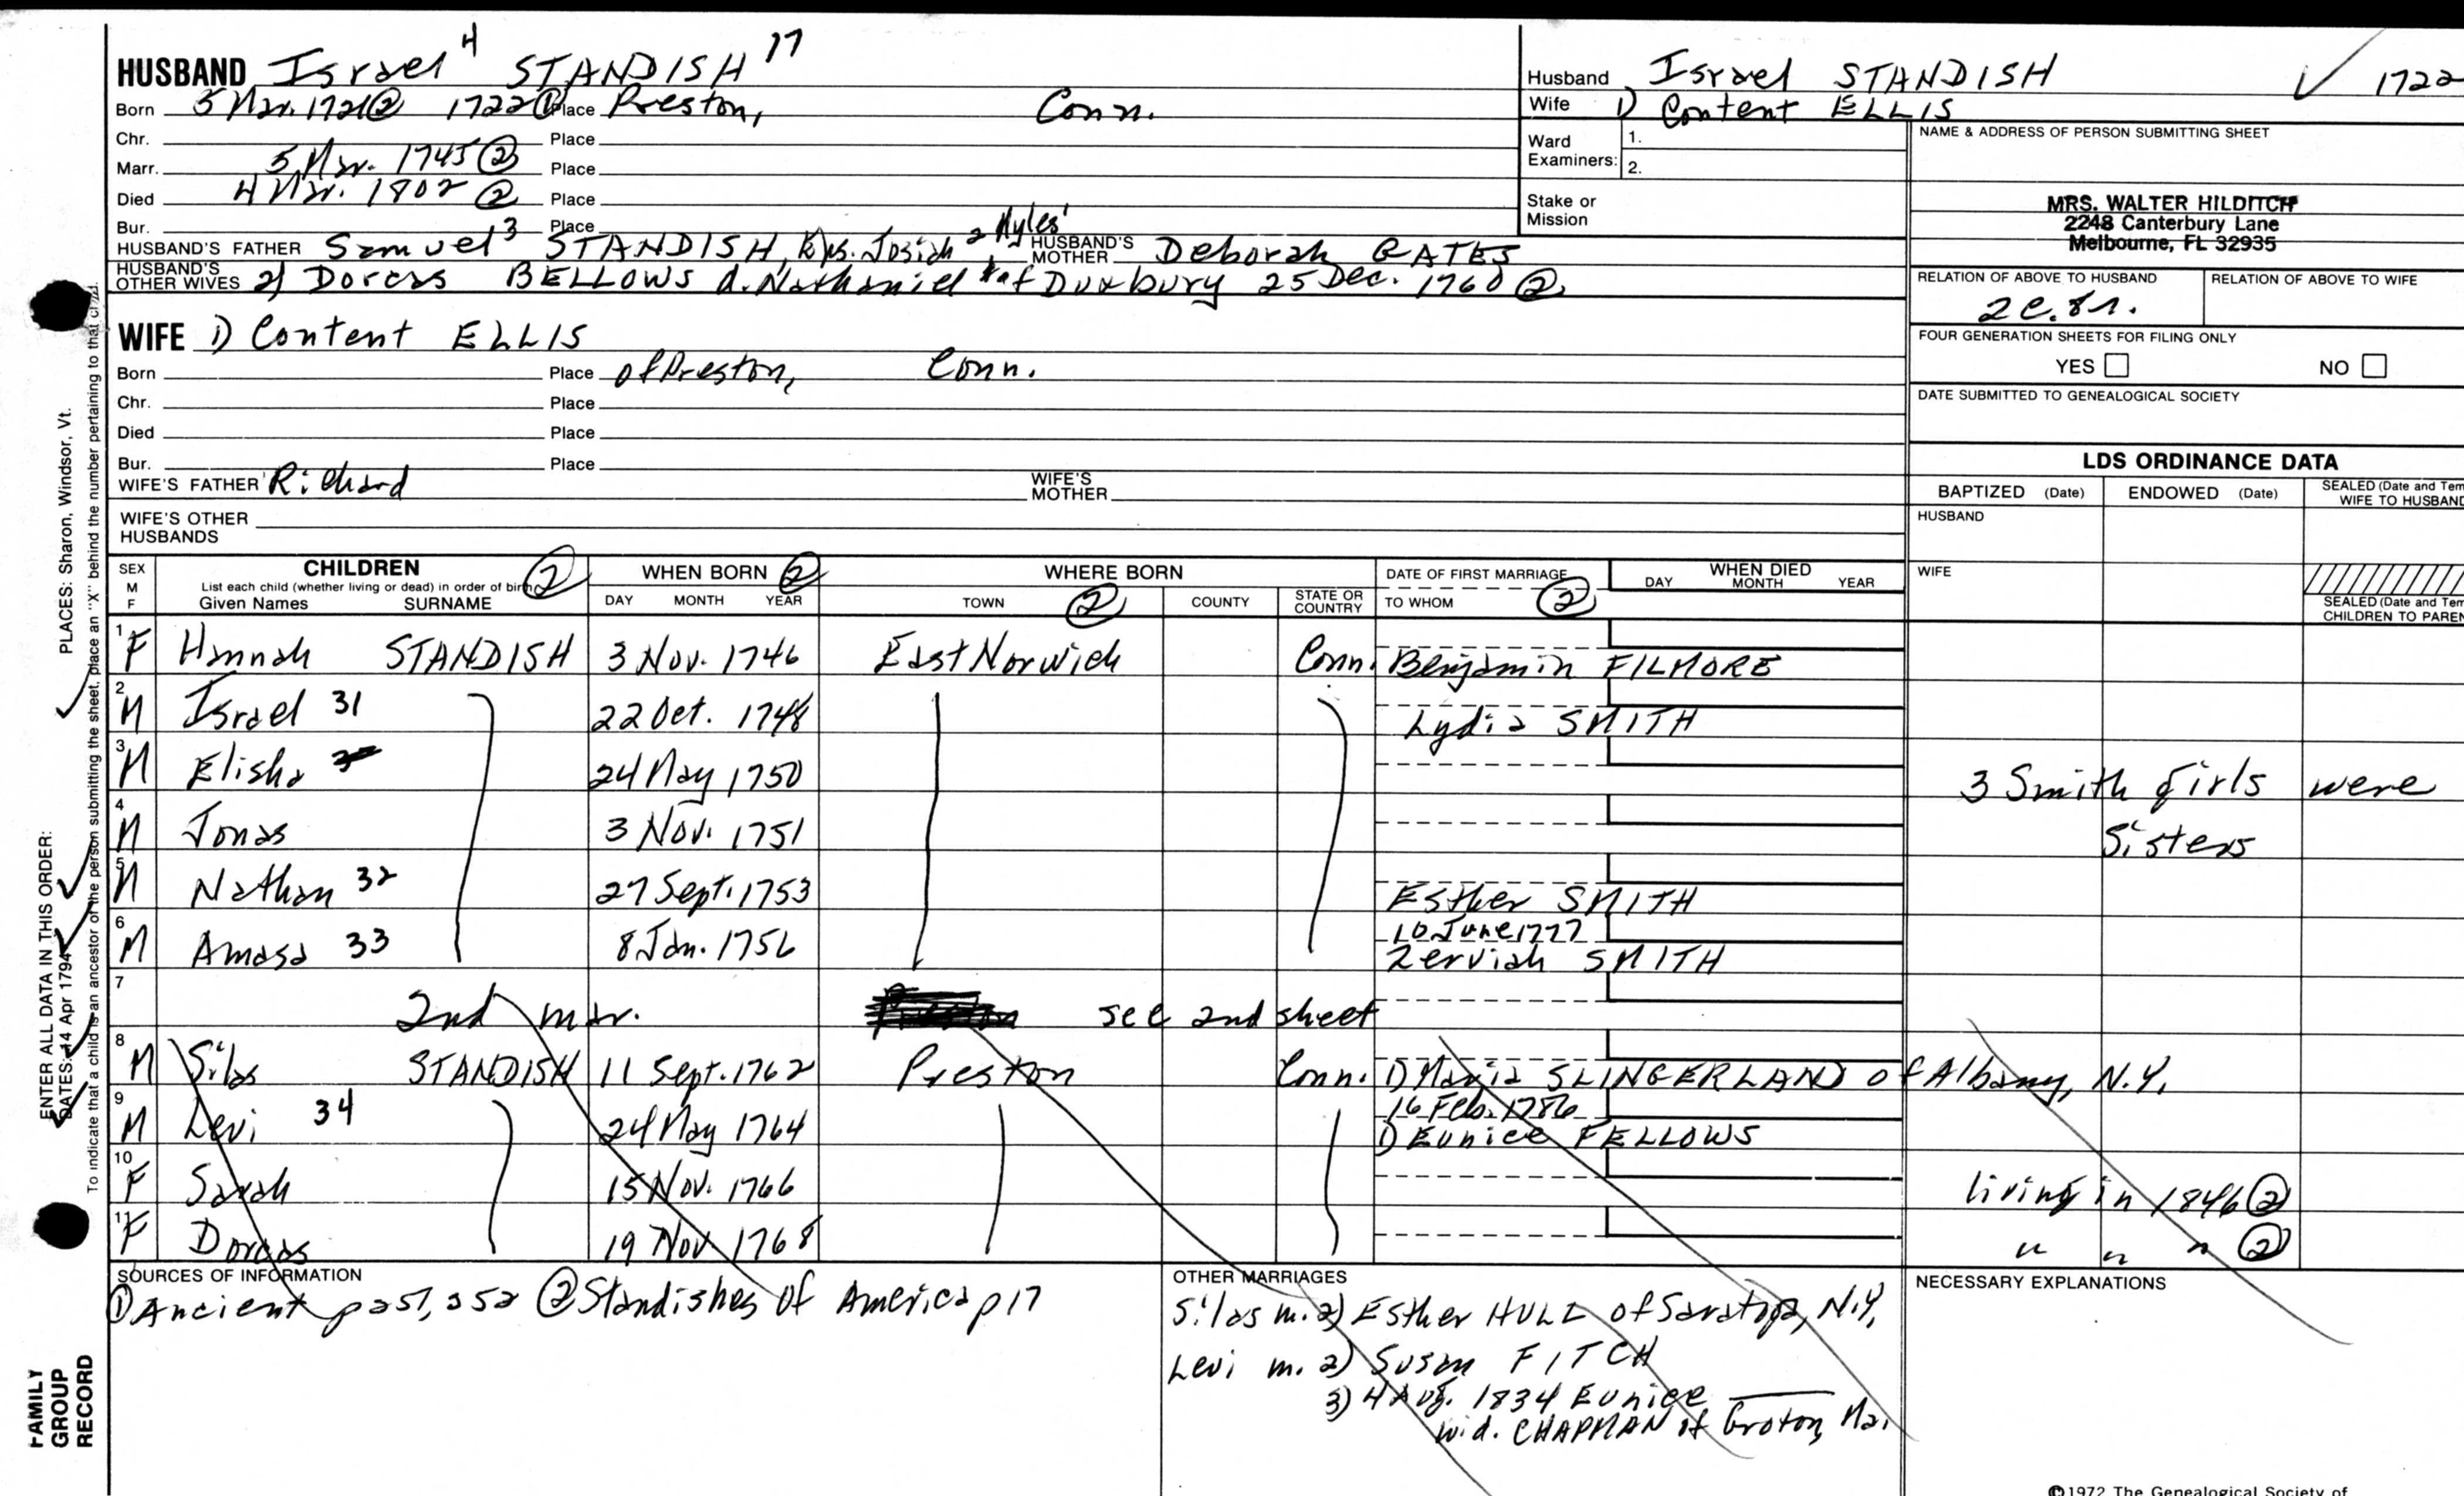 HUSBAND Israel 4 STANDISH 17
Born 5 Mar. 1721 ② 1722 ① Place Preston, Conn.
Chr. Place
Marr. 5 Mar. 1745 ② Place
Died 4 Mar. 1802 ② Place
Bur. Place
HUSBAND'S FATHER Samuel 3 STANDISH, Josiah 2 Myles 1 HUSBAND'S MOTHER Deborah GATES
HUSBAND'S OTHER WIVES 2) Dorcas BELLOWS d. Nathaniel of Duxbury 25 Dec. 1760 ②
Husband Israel STANDISH 1722
Wife 1) Content ELLIS
Ward Examiners: 1.
2.
Stake or Mission
NAME & ADDRESS OF PERSON SUBMITTING SHEET
MRS. WALTER HILDITCH
2248 Canterbury Lane
Melbourne, FL 32935
RELATION OF ABOVE TO HUSBAND RELATION OF ABOVE TO WIFE
FOUR GENERATION SHEETS FOR FILING ONLY
YES NO
DATE SUBMITTED TO GENEALOGICAL SOCIETY
WIFE 1) Content ELLIS
Born Place of Preston, Conn.
Chr. Place
Died Place
Bur. Place
WIFE'S FATHER Richard WIFE'S MOTHER
WIFE'S OTHER HUSBANDS
LDS ORDINANCE DATA
BAPTIZED (Date) ENDOWED (Date) SEALED (Date and Tem
WIFE TO HUSBAND
HUSBAND
WIFE
SEALED (Date and Tem
CHILDREN TO PAREN
SEX M F CHILDREN ② WHEN BORN ② WHERE BORN DATE OF FIRST MARRIAGE WHEN DIED
List each child (whether living or dead) in order of birth DAY MONTH YEAR
Given Names SURNAME DAY MONTH YEAR TOWN ② COUNTY STATE OR COUNTRY TO WHOM ②
1 F Hannah STANDISH 3 Nov. 1746 East Norwich Conn. Benjamin FILMORE
2 M Israel 31 22 Oct. 1748 Lydia SMITH
3 M Elisha 24 May 1750 3 Smith girls were
4 M Jonas 3 Nov. 1751 Sisters
5 M Nathan 32 27 Sept. 1753 Esther SMITH
6 M Amasa 33 8 Jan. 1756 10 June 1777
Zerviah SMITH
7 2nd mar. Preston see 2nd sheet
8 M Silas STANDISH 11 Sept. 1762 Preston Conn. 1) Maria SLINGERLAND of Albany, N.Y.
9 M Levi 34 24 May 1764 16 Feb. 1786
1) Eunice FELLOWS
10 F Sarah 15 Nov. 1766 living in 1846 ②
11 F Dorcas 19 Nov. 1768 " " " ②
SOURCES OF INFORMATION
① Ancient p 251, 252 ② Standishes of America p 17
OTHER MARRIAGES
Silas m. 2) Esther HULL of Saratoga, N.Y.
Levi m. 2) Susan FITCH
3) 4 Aug. 1834 Eunice
wid. CHAPMAN of Groton, Ma.
NECESSARY EXPLANATIONS
©1972 The Genealogical Society of
ENTER ALL DATA IN THIS ORDER:
DATES: 14 Apr 1794
PLACES: Sharon, Windsor, Vt.
To indicate that a child is an ancestor of the person submitting the sheet, place an "X" behind the number pertaining to that child.
FAMILY
GROUP
RECORD